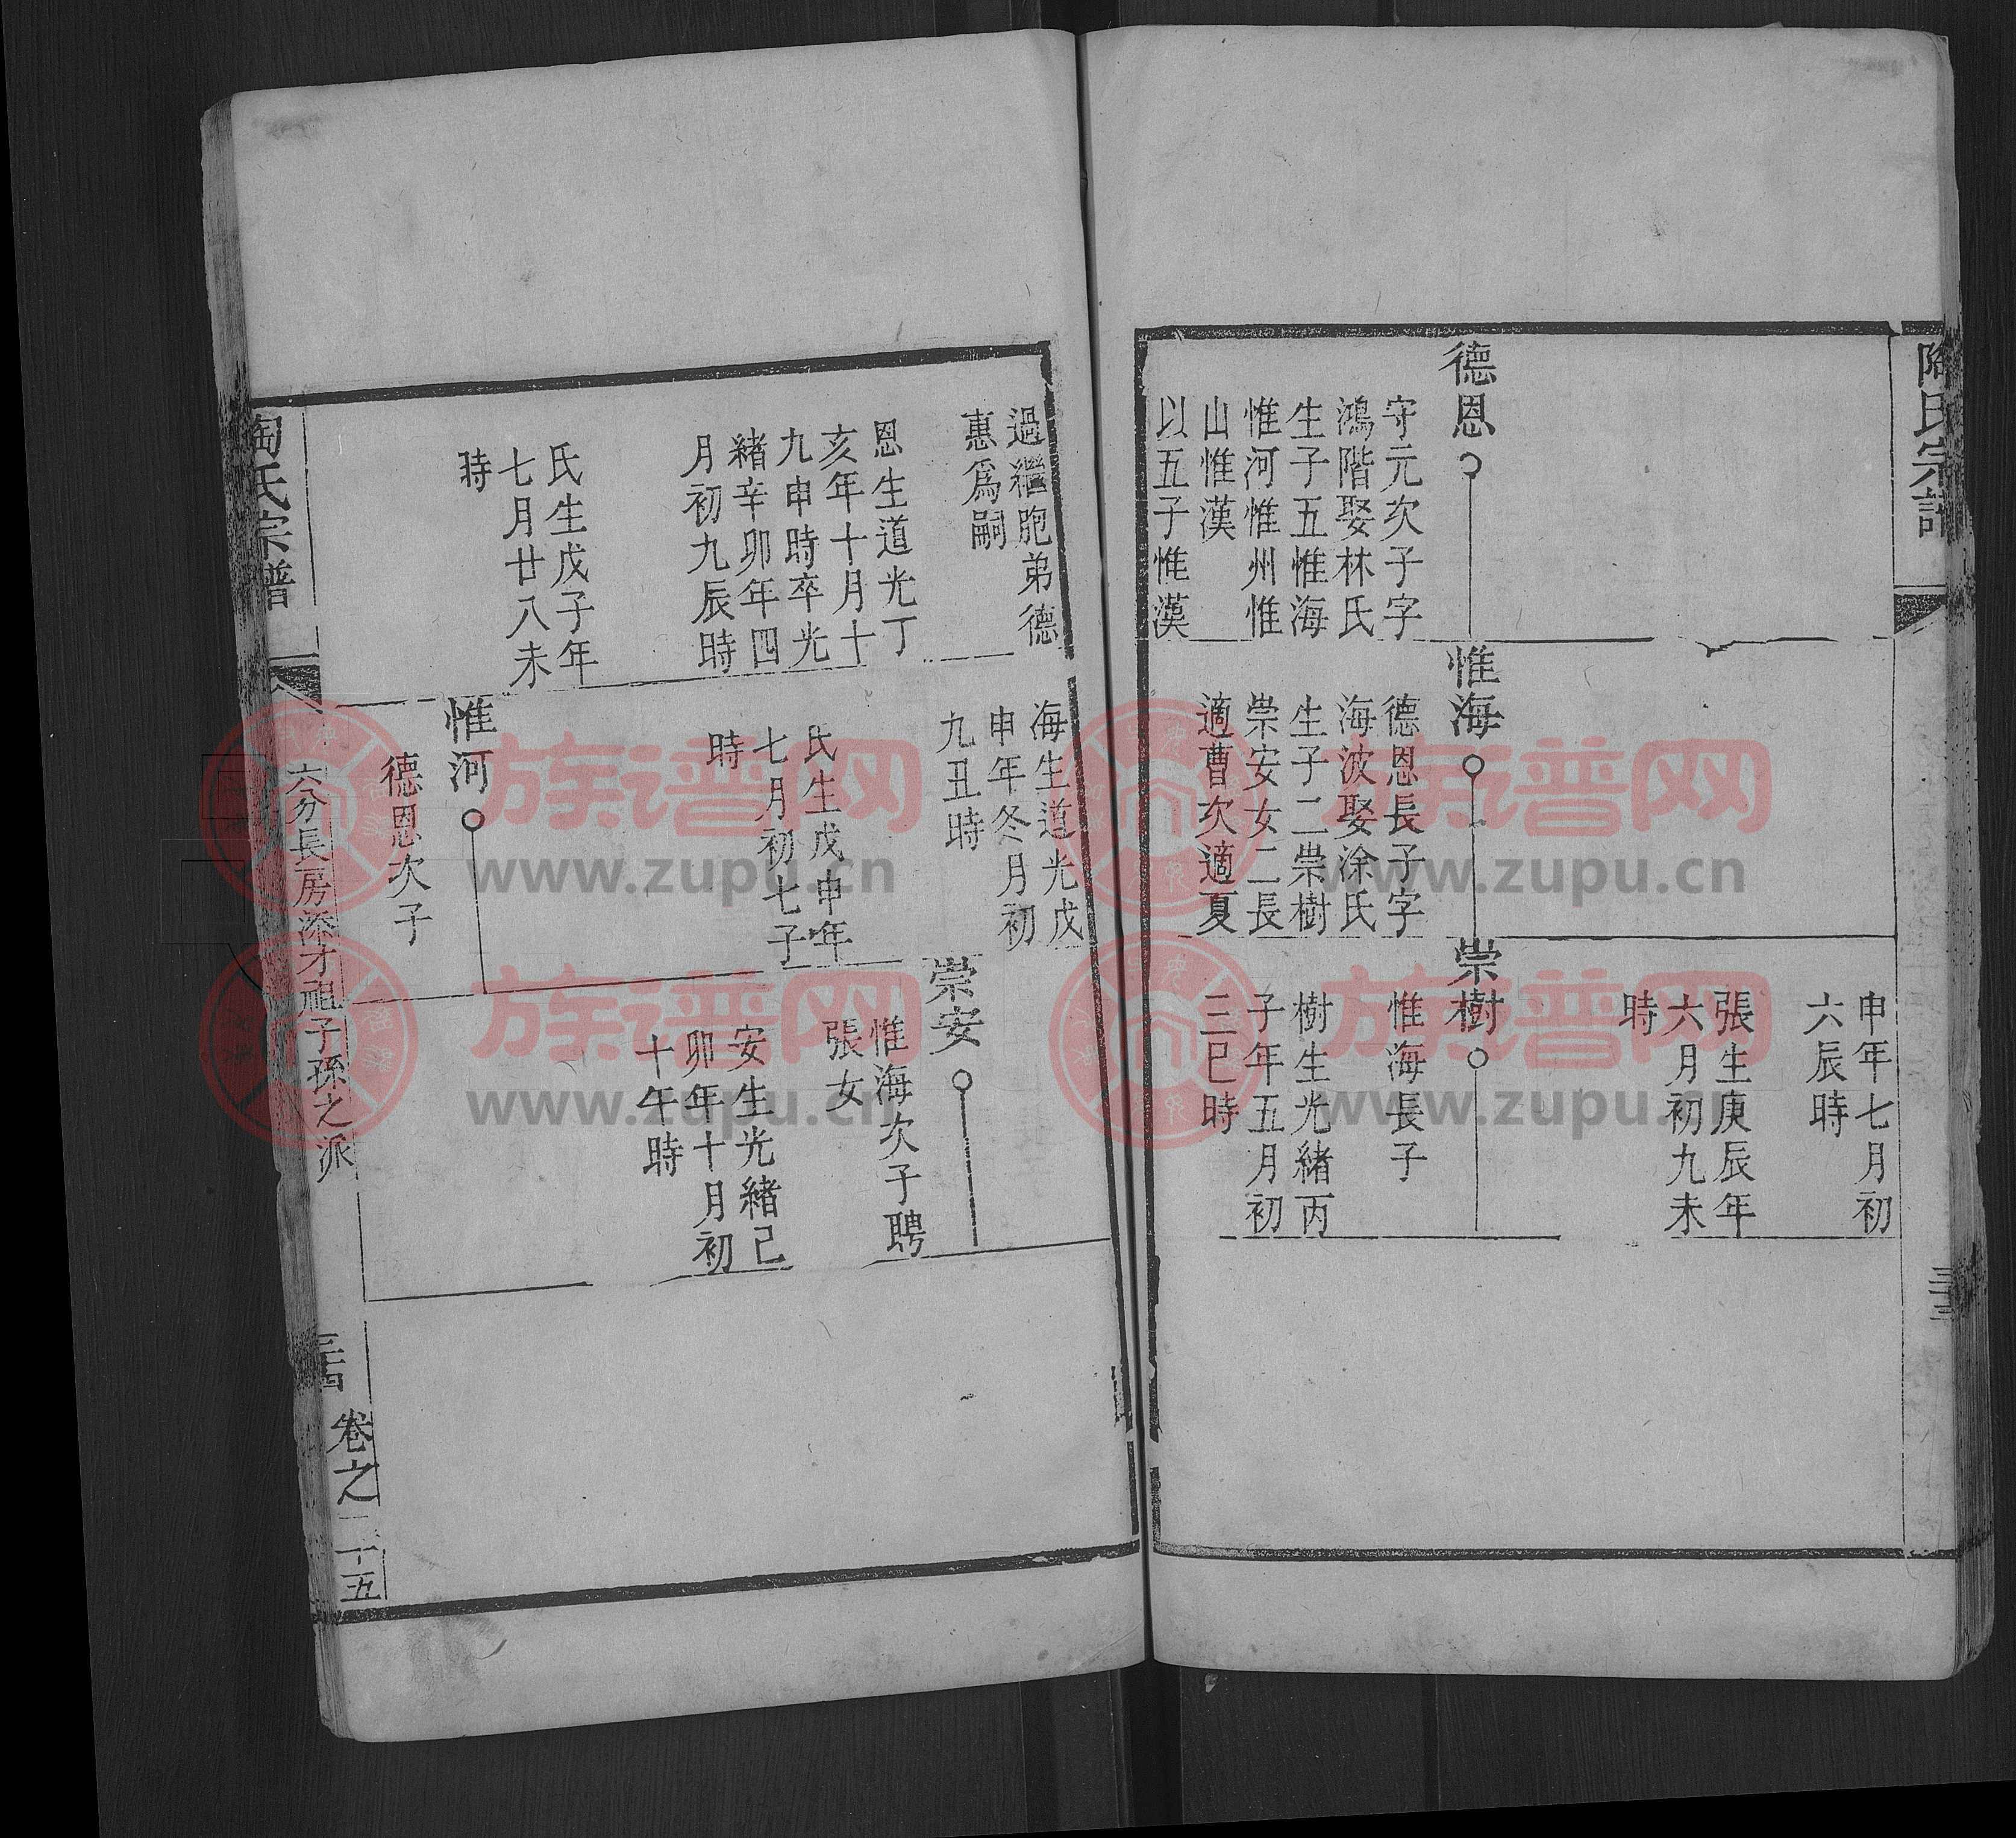 陶氏宗譜
三十三
德恩
守元次子字
鴻階娶林氏
生子五惟海
惟河惟州惟
山惟漢
以五子惟漢
惟海
德恩長子字
海波娶涂氏
生子二崇樹
崇安女二長
適曹次適夏
申年七月初
六辰時
張生庚辰年
六月初九未
時
崇樹
惟海長子
樹生光緒丙
子年五月初
三巳時
過繼胞弟德
惠為嗣
恩生道光丁
亥年十月十
九申時卒光
緒辛卯年四
月初九辰時
氏生戊子年
七月廿八未
時
海生道光戊
申年冬月初
九丑時
氏生戊申年
七月初七子
時
惟河
德恩次子
崇安
惟海次子聘
張女
安生光緒己
卯年十月初
十午時
陶氏宗譜
六分長房添才祖子孫之派
三十四
卷之二十五
族谱网
www.zupu.cn
族谱网
www.zupu.cn
族谱网
www.zupu.cn
族谱网
www.zupu.cn